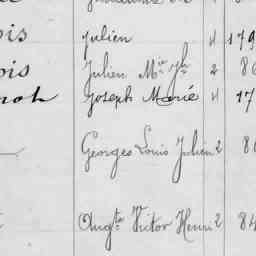 ois Julien 4 179
ois Julien Mie Jh 2 86
Joseph Marie 4 17
Georges Louis Julien 2 86
Augte Victor Henri 2 84